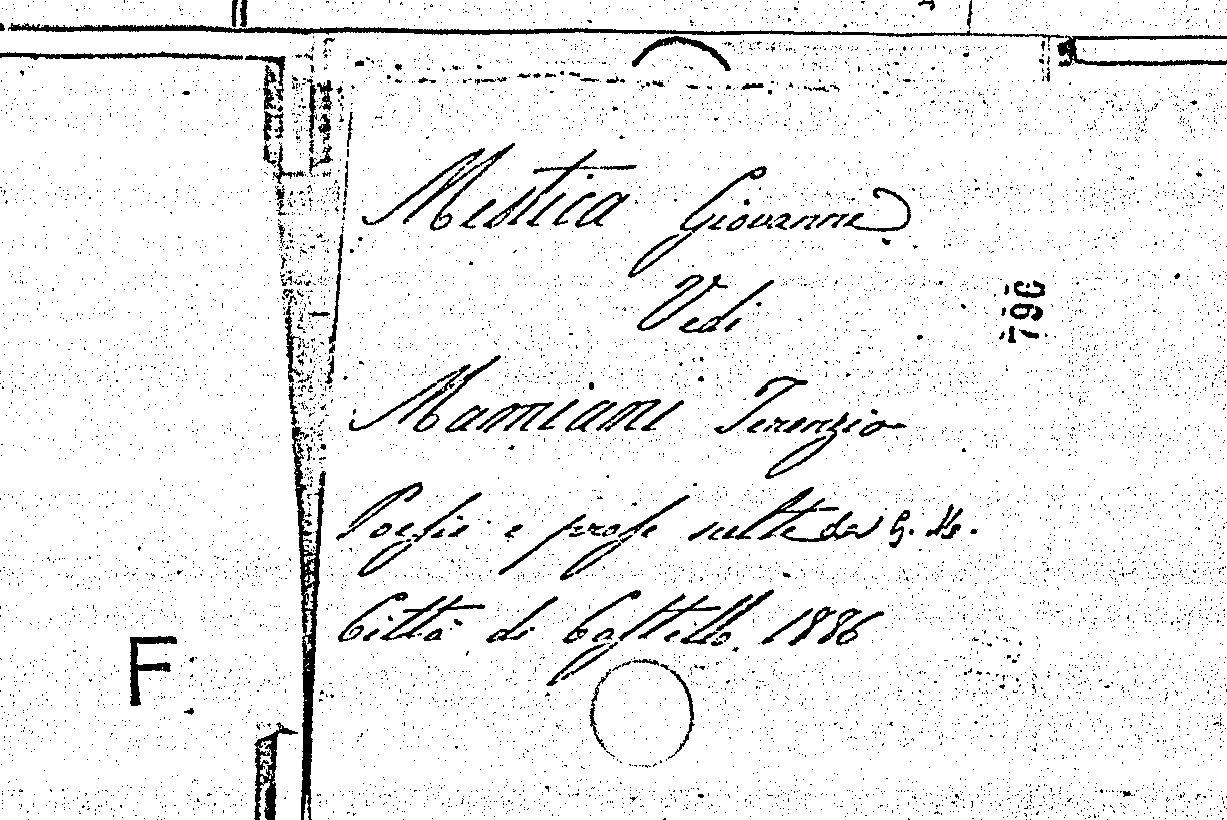 Mestica Giovanni
Vedi
Mamiani Terenzio
Poesie e prose scelte da G. M.
Città di Castello. 1886
796
F